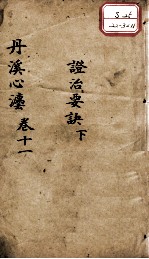 證治要訣下
丹溪心法 卷十一